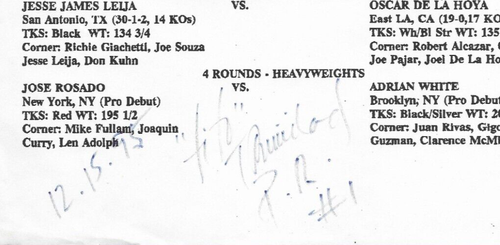 JESSE JAMES LEIJA
San Antonio, TX (30-1-2, 14 KOs)
TKS: Black WT: 134 3/4
Corner: Richie Giachetti, Joe Souza
Jesse Leija, Don Kuhn
VS.
OSCAR DE LA HOYA
East LA, CA (19-0,17 KO
TKS: Wh/Bl Str WT: 135
Corner: Robert Alcazar,
Joe Pajar, Joel De La Ho
4 ROUNDS - HEAVYWEIGHTS
JOSE ROSADO
New York, NY (Pro Debut)
TKS: Red WT: 195 1/2
Corner: Mike Fullam, Joaquin
Curry, Len Adolph
VS.
ADRIAN WHITE
Brooklyn, NY (Pro Debut
TKS: Black/Silver WT: 20
Corner: Juan Rivas, Gigo
Guzman, Clarence McM
12.15.95
"Tito"
Trinidad
P.R.
#1